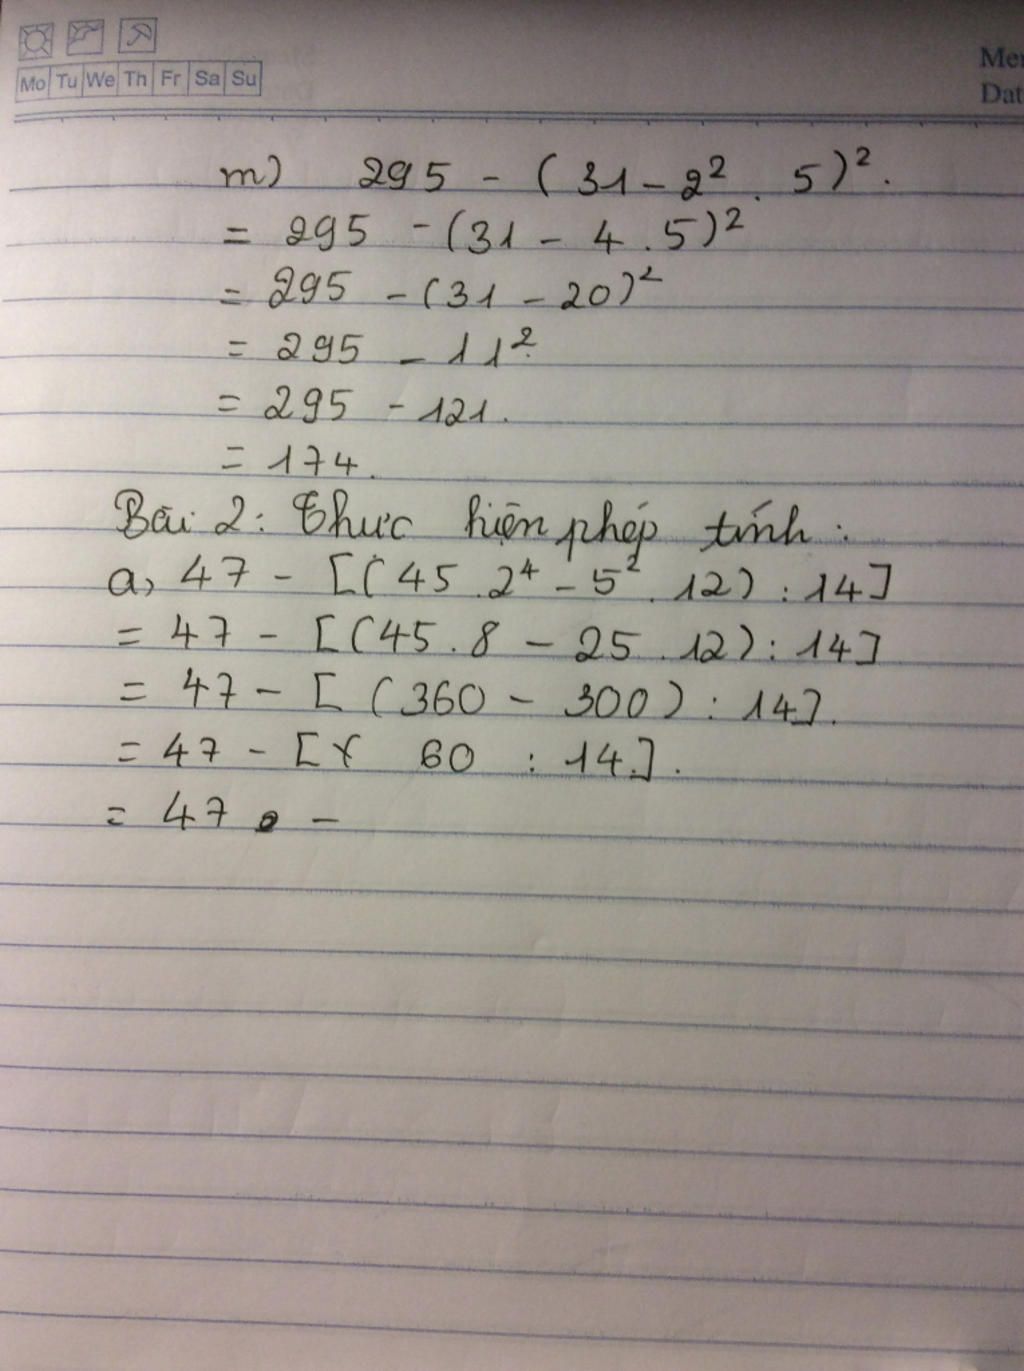 Mo Tu We Th Fr Sa Su
m) 295 - (31 - 2² . 5)².
= 295 - (31 - 4 . 5)²
= 295 - (31 - 20)²
= 295 - 11²
= 295 - 121.
= 174.
Bài 2: Thực hiện phép tính :
a, 47 - [(45 . 2⁴ - 5² . 12) : 14]
= 47 - [(45 . 8 - 25 . 12) : 14]
= 47 - [ (360 - 300) : 14].
= 47 - [ 60 : 14.].
= 47 -